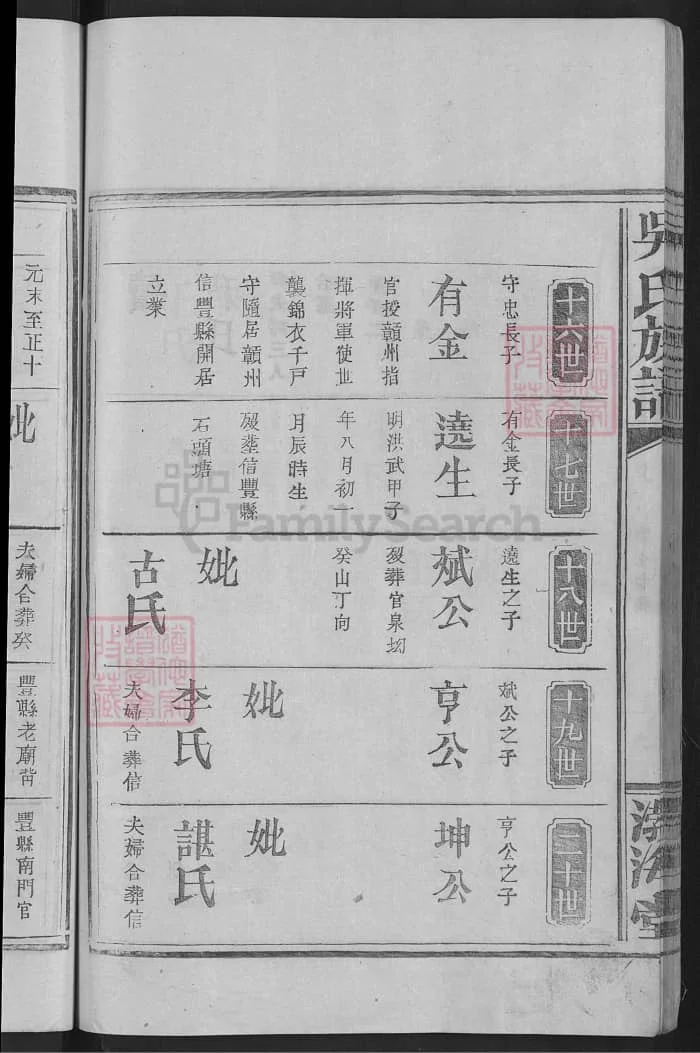 吳氏族譜
渤海堂
十六世
守忠長子
有金
官授贛州指
揮將軍使世
襲錦衣千戶
守隨居贛州
信豐縣開居
立業
十七世
有金長子
遶生
明洪武甲子
年八月初一
月辰時生
歿塟信豐縣
石頭塘
十八世
遶生之子
斌公
歿葬官泉坳
癸山丁向
妣
古氏
十九世
斌公之子
亨公
妣
李氏
夫婦合葬信
二十世
亨公之子
坤公
妣
諶氏
夫婦合葬信
元末至正十
妣
夫婦合葬癸
豐縣老廟背
豐縣南門官
FamilySearch